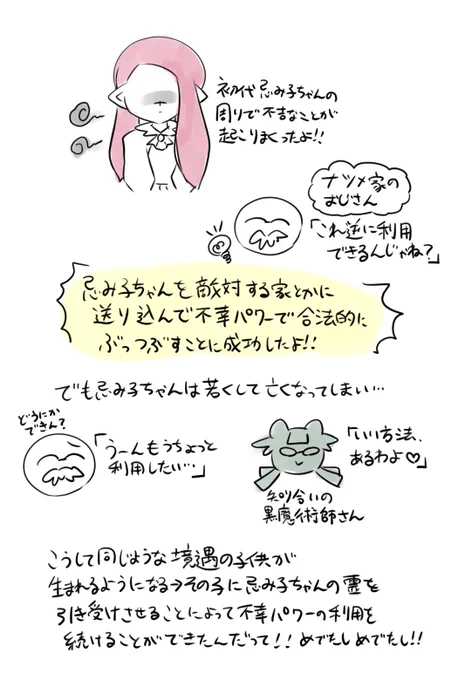 初代忌み子ちゃんの
周りで不吉なことが
起こりまくったよ!!
ナツメ家の
おじさん
「これ逆に利用
できるんじゃね?」
忌み子ちゃんを敵対する家とかに
送り込んで不幸パワーで合法的に
ぶっつぶすことに成功したよ!!
でも忌み子ちゃんは若くして亡くなってしまい…
どうにか
できん?
「うーんもうちょっと
利用したい…」
「いい方法、
あるわよ♡」
知り合いの
黒魔術師さん
こうして同じような境遇の子供が
生まれるようになる→その子に忌み子ちゃんの霊を
引き受けさせることによって不幸パワーの利用を
続けることができたんだって!!めでたしめでたし!!